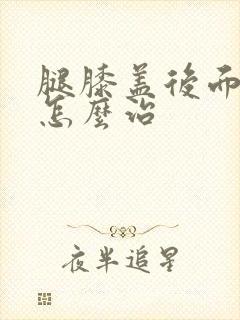 腿膝盖後而
怎麼治
夜半追星